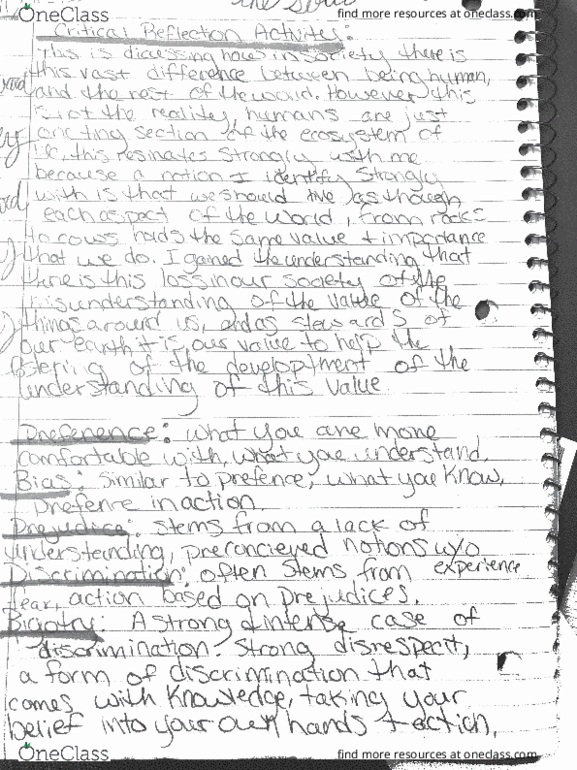 the
OneClass
find more resources at oneclass.com
Critical Reflection Activity:
This is discussing how in society there is
this vast difference between being human,
and the rest of the world. However this
is not the reality, humans are just
one section of the ecosystem of
life, this resinates strongly with me
because a notion I identify strongly
with is that we should live as though
each aspect of the world, from rocks
to cows holds the same value + importance
that we do. I gained the understanding that
there is this loss in our society of the
misunderstanding of the value of the
things around us, and as stewards of
our earth it is our value to help the
fostering of the development of the
understanding of this value
Preference: what you are more
comfortable with, what you understand.
Bias: similar to prefence, what you know,
prefence in action.
Prejudice: stems from a lack of
understanding, preroncieved notions w/o
experience
Discrimination: often stems from
fear, action based on prejudices.
Bigotry: A strong + intense case of
discrimination. Strong disrespecit,
a form of discrimination that
comes with knowledge, taking your
belief into your own hands + action.
OneClass
find more resources at oneclass.com